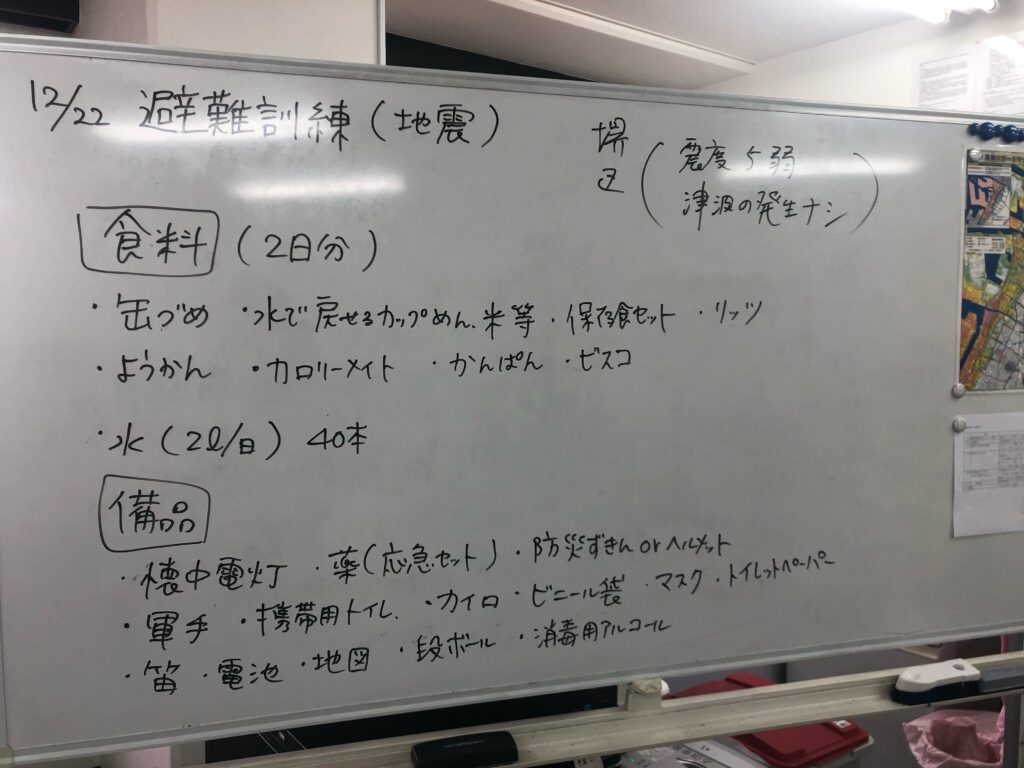 12/22 避難訓練(地震)
堺区(震度5弱
津波の発生ナシ)
食料(2日分)
・缶づめ ・水で戻せるカップめん、米等 ・保存食セット ・リッツ
・ようかん ・カロリーメイト ・かんぱん ・ビスコ
・水(2ℓ/日) 40本
備品
・懐中電灯 ・薬(応急セット) ・防災ずきんorヘルメット
・軍手 ・携帯用トイレ ・カイロ ・ビニール袋 ・マスク ・トイレットペーパー
・笛 ・電池 ・地図 ・段ボール ・消毒用アルコール